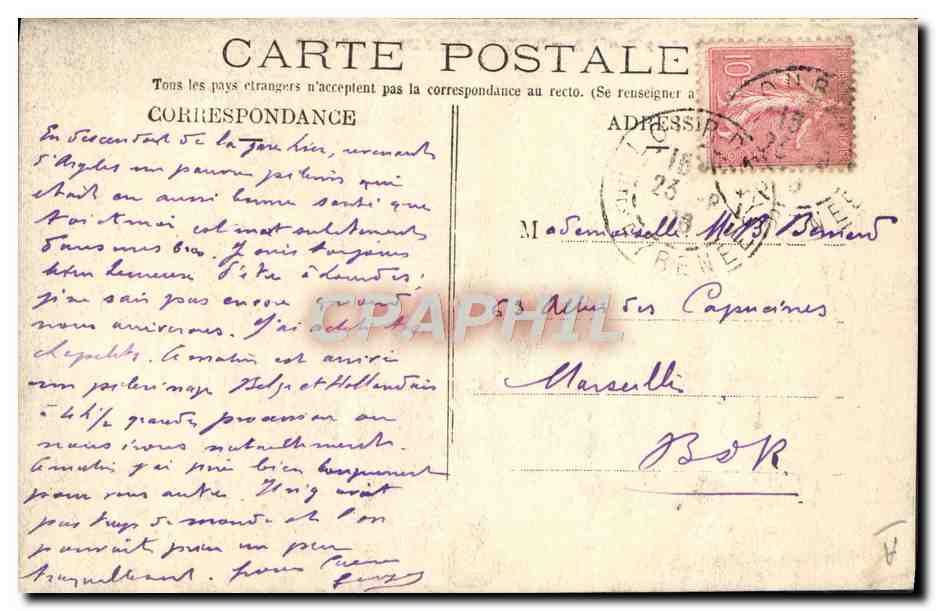 CARTE POSTALE
Tous les pays étrangers n'acceptent pas la correspondance au recto. (Se renseigner a
CORRESPONDANCE
ADRESS
10
En descendant de la gare hier, revenants
d'Argeles un pauvre pelerin qui
etait en aussi bonne santé que
toi et moi est mort subitement
dans mes bras. Je suis toujours
bien heureuse d'être à Lourdes;
je ne sais pas encore quand
nous arriverons. J'ai acheté tes
chapelets. Ce matin est arrivé
un pélerinage Belge et Hollandais
à 4 h 1/2 grande procession ou
nous irons naturellement.
Ce matin j'ai prié bien longuement
pour vous autres. Il n'y avait
pas trop de monde et l'on
pouvait prier un peu
tranquillement.
Mademoiselle Bernard
63 Allées des Capucines
Marseille
B D R.
CPAPHIL